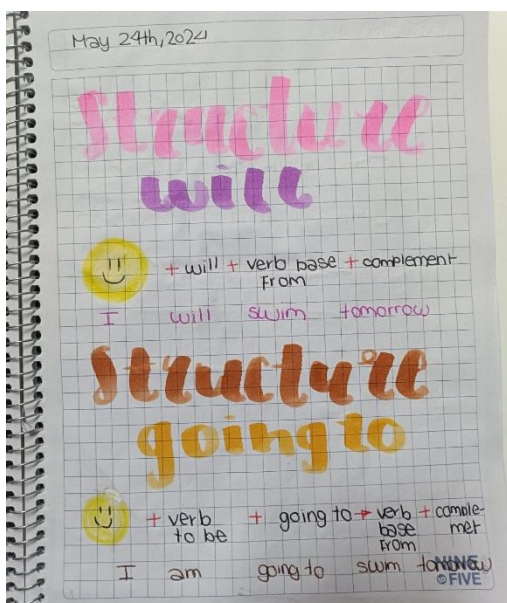 May 24th, 2024
Structure
will
+ will + verb base + complement
From
I will swim tomorrow
Structure
going to
+ verb + going to + verb + comple-
to be base met
From
I am going to swim tomorrow
NINE
FIVE